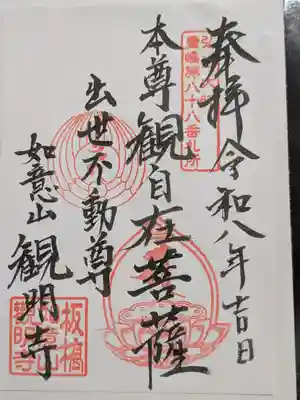 奉拝 令和八年吉日
本尊観自在菩薩
出世不動尊
如意山 観明寺
豊嶋第八十八番札所
板橋
観明寺